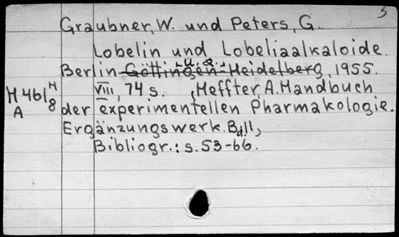 5
Graubner, W. und Peters, G.
Lobelin und Lobeliaalkaloide.
Berlin - u. a. - Göttingen - Heidelberg, 1955.
H 461 H/8 VIII, 74 s. , Heffter, A. Handbuch
A der experimentellen Pharmakologie.
Ergänzungswerk. Bd 11,
Bibliogr.: s. 53-66.